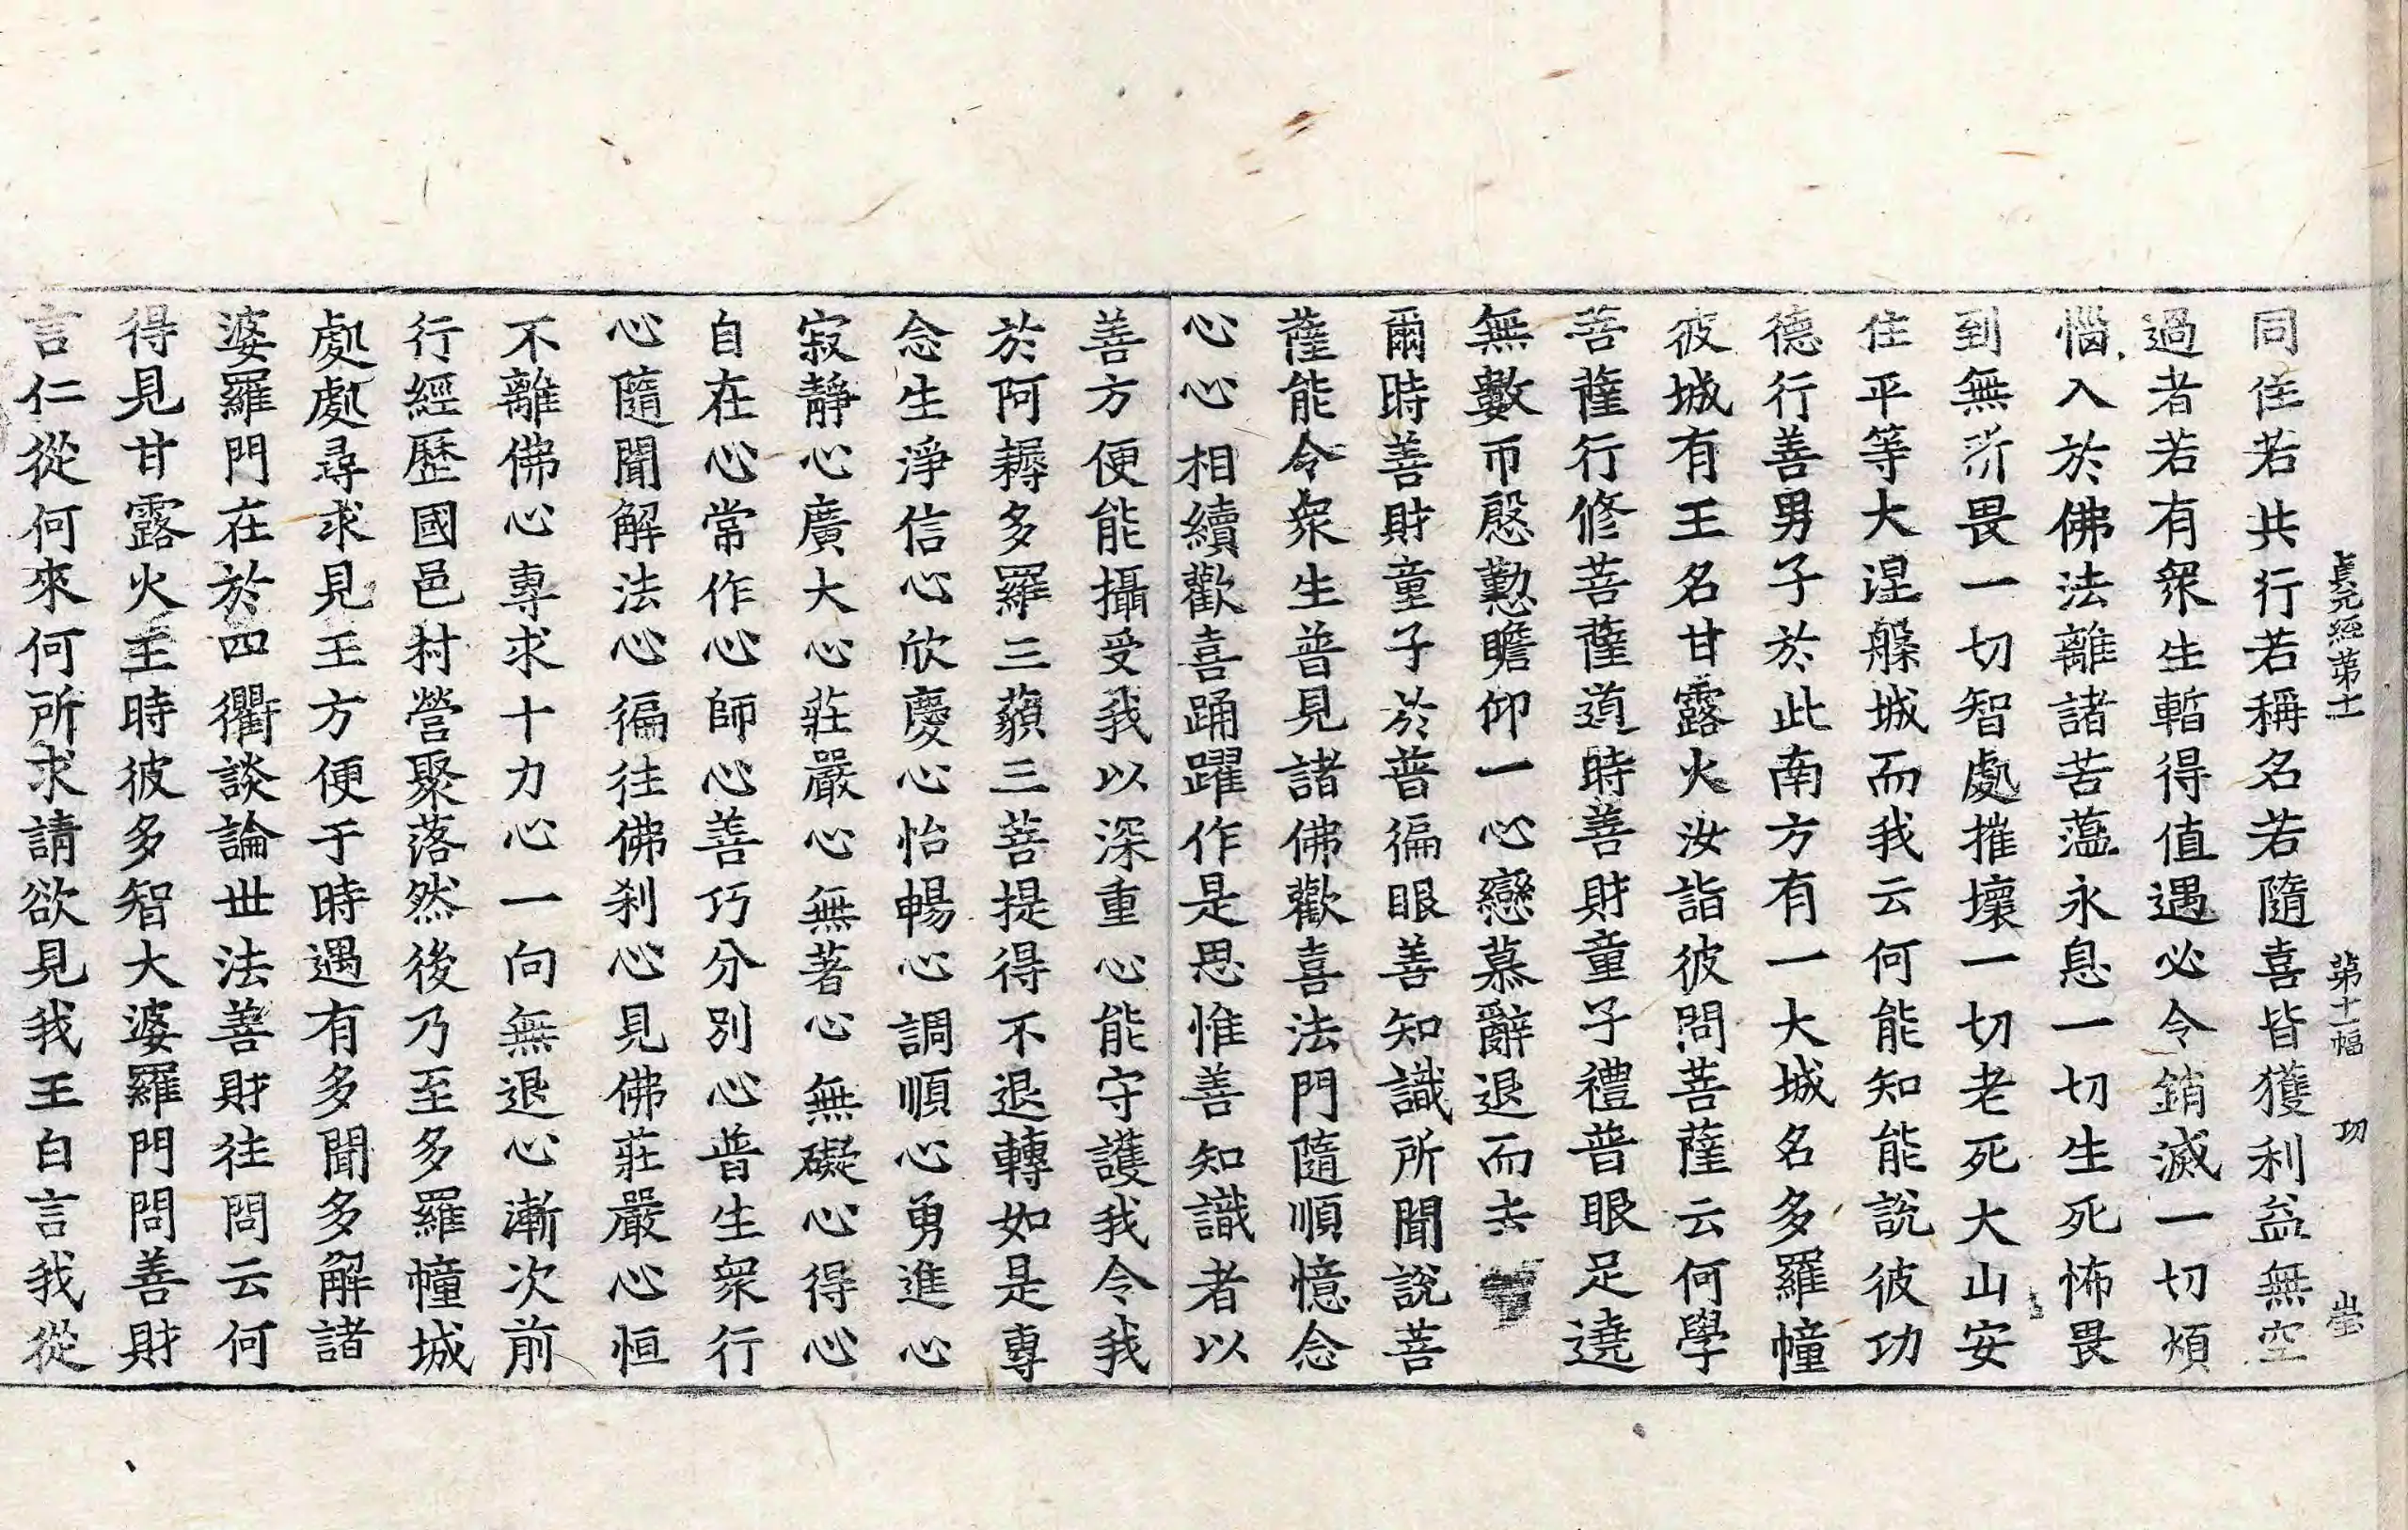 貞元經第十一 第十一幅 功 𡶶
同住若共行若稱名若隨喜皆獲利益無空
過者若有衆生暫得值遇必令銷滅一切煩
惱入於佛法離諸苦蘊永息一切生死怖畏
到無所畏一切智處摧壞一切老死大山安
住平等大涅槃城而我云何能知能說彼功
德行善男子於此南方有一大城名多羅幢
彼城有王名甘露火汝詣彼問菩薩云何學
菩薩行修菩薩道時善財童子禮普眼足遶
無數帀慇懃瞻仰一心戀慕辭退而去
爾時善財童子於普徧眼善知識所聞說菩
薩能令衆生普見諸佛歡喜法門隨順憶念
心心相續歡喜踊躍作是思惟善知識者以
善方便能攝受我以深重心能守護我令我
於阿耨多羅三藐三菩提得不退轉如是專
念生淨信心欣慶心怡暢心調順心勇進心
寂靜心廣大心莊嚴心無著心無礙心得心
自在心常作心師心善巧分別心普生衆行
心隨聞解法心徧往佛刹心見佛莊嚴心恒
不離佛心專求十力心一向無退心漸次前
行經歷國邑村營聚落然後乃至多羅幢城
處處尋求見王方便于時遇有多聞多解諸
婆羅門在於四衢談論世法善財往問云何
得見甘露火王時彼多智大婆羅門問善財
言仁從何來何所求請欲見我王白言我從